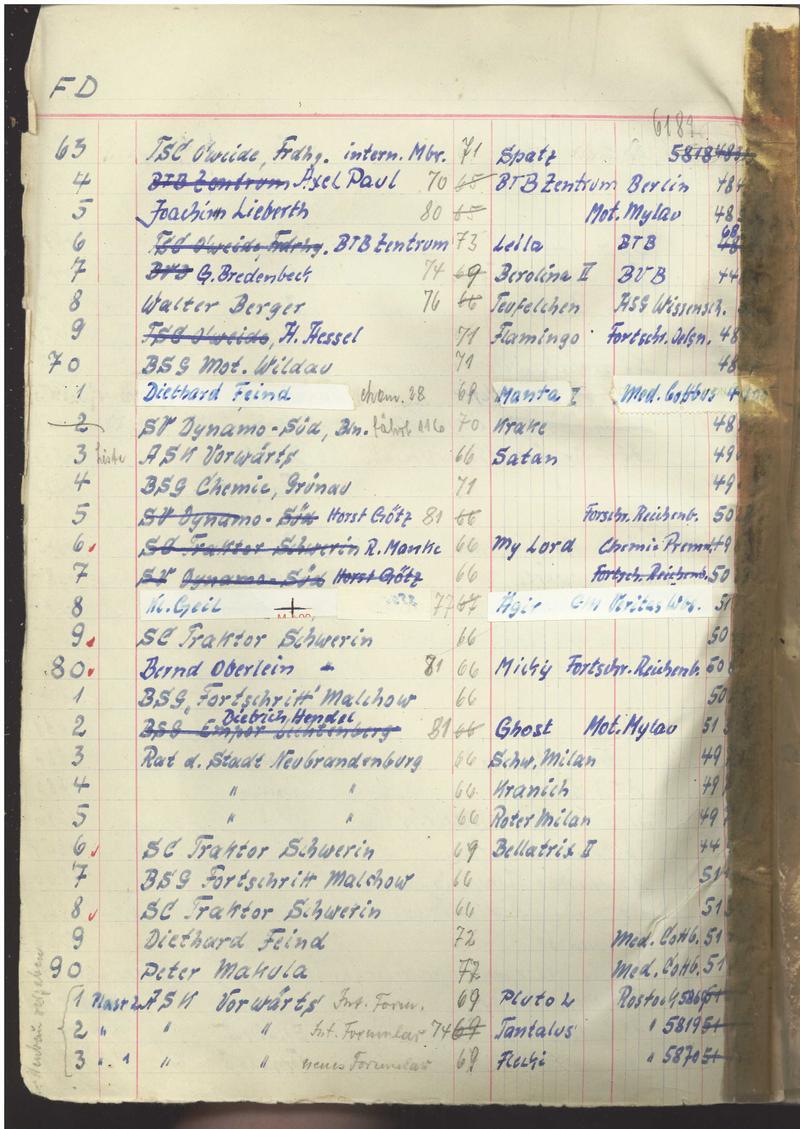 FD
6187
63 TSC Oweide, Frdhg. intern. Mbr. 71 Spatz 5818
4 BTB Zentrum Axel Paul 70 65 BTB Zentrum Berlin 484
5 Joachim Lieberth 80 65 Mot. Mylau 48
6 TSC Oweide, Frdhg. BTB Zentrum 73 Leila BTB 68
7 BVB G. Bredenbeck 74 69 Berolina II BVB 44
8 Walter Berger 76 66 Teufelchen HSG Wissensch.
9 TSC Oweide, H. Hessel 71 Flamingo Fortschr. Oelsn. 48
70 BSG Mot. Wildau 71 48
1 Diethard Feind 28 69 Manta I Med. Cottbus 4
2 SV Dynamo-Süd, Bln. fährt 116 70 Krake 48
3 Liste ASK Vorwärts 66 Satan 49
4 BSG Chemie, Grünau 71 49
5 SV Dynamo-Süd Horst Götz 81 66 Forschr. Reichenb. 50
6 SC Traktor Schwerin R. Manke 66 My Lord Chemie Premn. 49
7 SV Dynamo-Süd Horst Götz 66 Fortsch. Reichenb. 50
8 K. Geil 77 67 Ägir Veritas 51
9 SC Traktor Schwerin 66 50
80 Bernd Oberlein - 81 66 Micky Fortschr. Reichenb. 50
1 BSG "Fortschritt" Malchow 66 50
Dietrich Hendel
2 BSG Empor Lichtenberg 81 66 Ghost Mot. Mylau 51
3 Rat d. Stadt Neubrandenburg 66 Schw. Milan 49
4 " " 66 Kranich 49
5 " " 66 Roter Milan 49
6 SC Traktor Schwerin 69 Bellatrix II 44
7 BSG Fortschritt Malchow 66 51
8 SC Traktor Schwerin 66 51
9 Diethard Feind 72 Med. Cottb. 51
90 Peter Makula 72 Med. Cottb. 51
1 ASK Vorwärts Int. Form. 69 Pluto 2 Rostock
2 " " " Int. Formular 74 69 Tantalus " 5819 51
3 " 1 " " neues Formular 69 " 5870 51